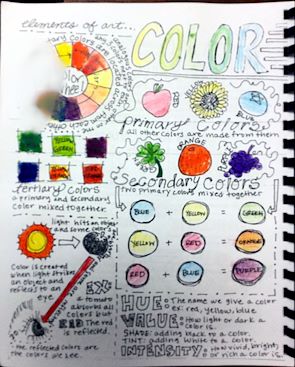 elements of art...
COLOR
Color
Wheel
RED
YELLOW
BLUE
Primary Colors
all other colors are made from them
YELLOW
GREEN
GREEN
ORANGE
PURPLE
Tertiary Colors
a primary and secondary
color mixed together.
Secondary Colors
two primary colors mixed together
BLUE + YELLOW = GREEN
YELLOW + RED = ORANGE
RED + BLUE = PURPLE
light hits an object
and some color
Color is created
when light strikes
an object and
reflects to an
eye
EX:
a tomato
absorbs all
colors but
RED The red
is reflected.
the reflected colors are
the colors we see.
HUE: The name we give a color
ex: red, yellow, blue
VALUE: How light or dark a
color is.
SHADE: adding black to a color.
TINT: adding white to a color.
INTENSITY: how vivid, bright,
or rich a color is.